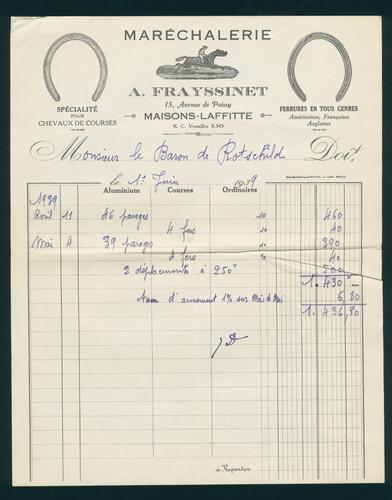 MARÉCHALERIE
A. FRAYSSINET
15, Avenue de Poissy
MAISONS-LAFFITTE
R. C. Versailles 8.345
SPÉCIALITÉ
POUR
CHEVAUX DE COURSES
FERRURES EN TOUS GENRES
Américaines, Françaises
Anglaises
Monsieur le Baron de Rotschild Doit
le 1er Juin 1939
MAISONS-LAFFITTE, - IMP.
Aluminium Courses Ordinaires
1939
Avril 11 46 parages 10 460
4 fers 10 40
Mai 4 39 parages 10 390
4 fers 10 40
2 déplacements à 250 500
1.430 —
Taxe d'armement 1% sur Mois de Mai 6,80
1.436,80
à Reporter